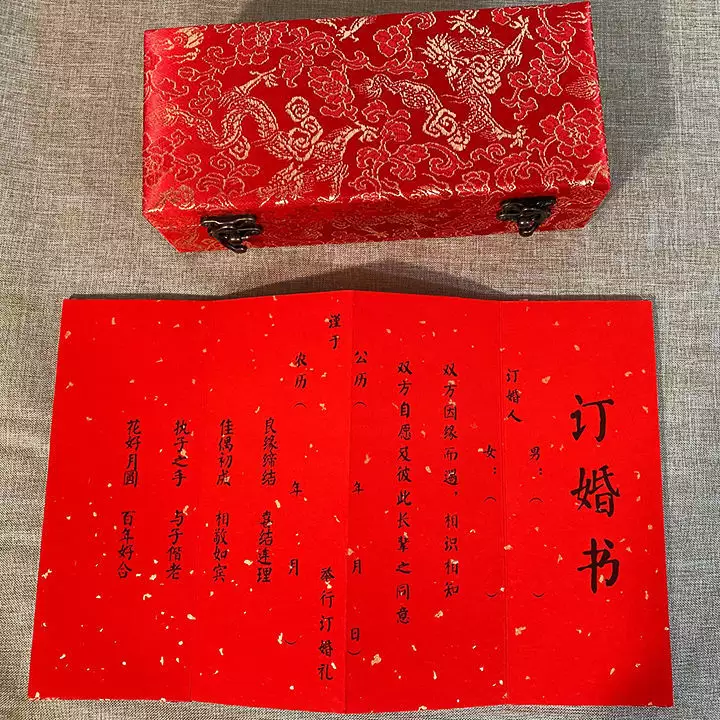 订婚书
男：（ ）
订婚人
女：（ ）
双方因缘而遇，相识相知
双方自愿及彼此长辈之同意
公历（ 年 月 日）
谨于 举行订婚礼
农历（ 年 月 ）
良缘缔结 喜结连理
佳偶初成 相敬如宾
执子之手 与子偕老
花好月圆 百年好合